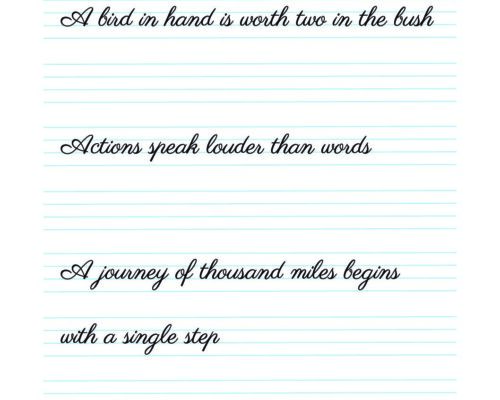 A bird in hand is worth two in the bush
Actions speak louder than words
A journey of thousand miles begins
with a single step